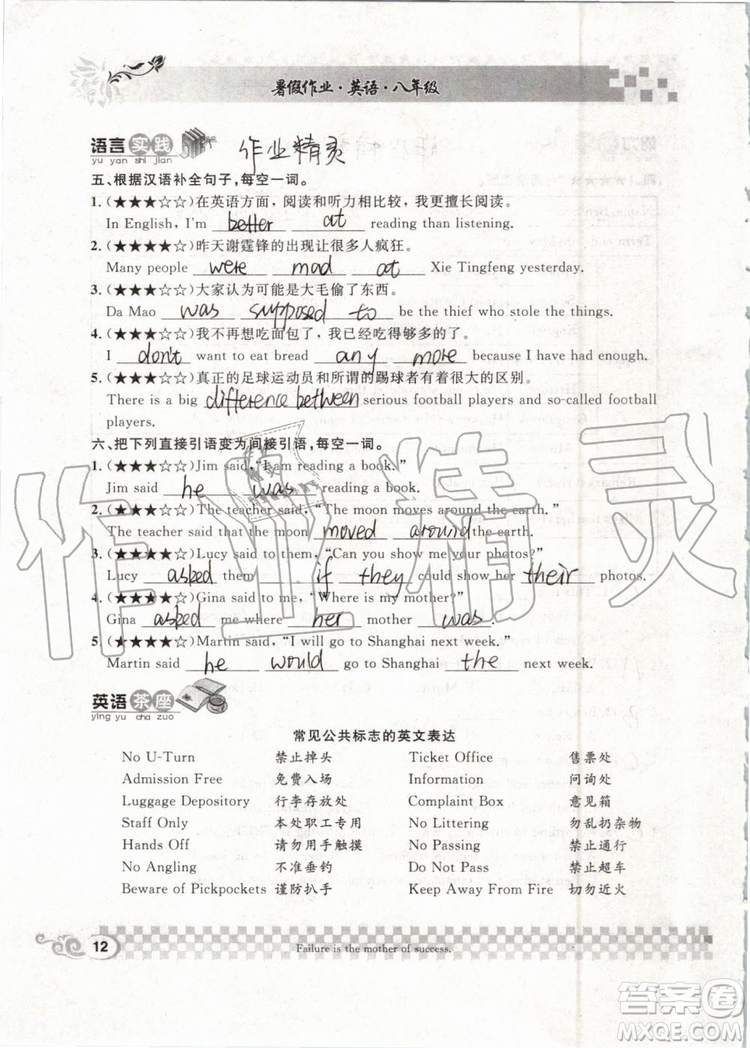 暑假作业·英语·八年级
语言实践
yu yan shi jian
作业精灵
五、根据汉语补全句子,每空一词。
1. (★★★☆☆)在英语方面,阅读和听力相比较,我更擅长阅读。
In English, I'm better at reading than listening.
2. (★★★☆☆)昨天谢霆锋的出现让很多人疯狂。
Many people were mad at Xie Tingfeng yesterday.
3. (★★★☆☆)大家认为可能是大毛偷了东西。
Da Mao was supposed to be the thief who stole the things.
4. (★★★☆☆)我不再想吃面包了,我已经吃得够多的了。
I don't want to eat bread any more because I have had enough.
5. (★★★☆☆)真正的足球运动员和所谓的踢球者有很大的区别。
There is a big difference between serious football players and so-called football
players.
六、把下列直接引语变为间接引语,每空一词。
1. (★★★★☆)Jim said,"I am reading a book."
Jim said he was reading a book.
2. (★★★★☆)The teacher said, "The moon moves around the earth."
The teacher said that the moon moved around the earth.
3. (★★★★☆)Lucy said to them,"Can you show me your photos?"
Lucy asked them if they could show her their photos.
4. (★★★★☆)Gina said to me,"Where is my mother?"
Gina asked me where her mother was.
5. (★★★★☆)Martin said, "I will go to Shanghai next week."
Martin said he would go to Shanghai the next week.
英语茶座
ying yu cha zuo
常见公共标志的英文表达
No U-Turn 禁止掉头 Ticket Office 售票处
Admission Free 免费入场 Information 问询处
Luggage Depository 行李存放处 Complaint Box 意见箱
Staff Only 本处职工专用 No Littering 勿乱扔杂物
Hands Off 请勿用手触摸 No Passing 禁止通行
No Angling 不准垂钓 Do Not Pass 禁止超车
Beware of Pickpockets 谨防扒手 Keep Away From Fire 切勿近火
12
Failure is the mother of success.
作业精灵
答案圈
MXQE.COM